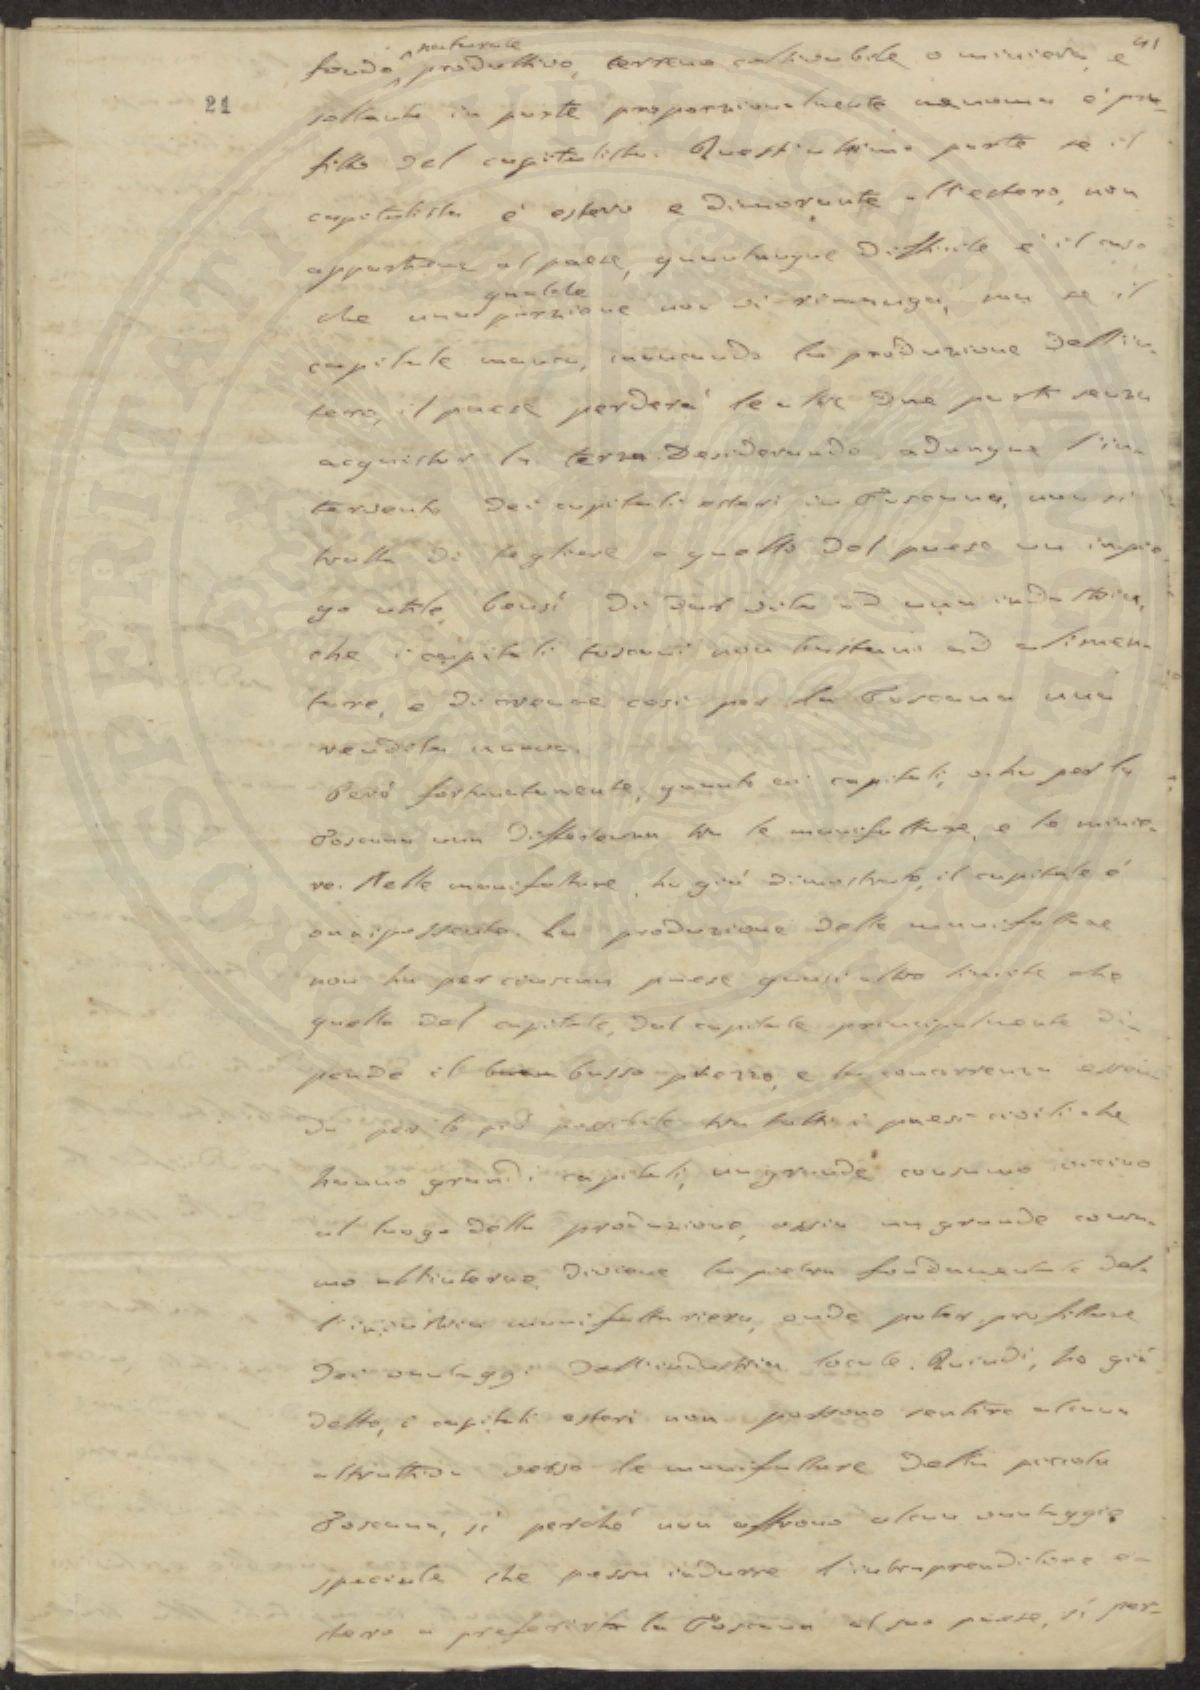 41
21
fondo naturale produttivo, terreno coltivabile o miniera, e
soltanto in parte proporzionalmente menoma è pro-
fitto del capitalista. Quest'ultima parte se il
capitalista è estero e dimorante all'estero, non
appartiene al paese, quantunque difficile è il caso
che una qualche porzione non vi rimanga, ma se il
capitale manca, mancando la produzione dell'in-
tero, il paese perderà le altre due parti senza
acquistar la terza. Desiderando adunque l'in-
tervento dei capitali esteri in Toscana, non si
tratta di togliere a quello del paese un impie-
go utile, bensì di dar vita ad una industria,
che i capitali toscani non bastano ad alimen-
tare, e di creare così per la Toscana una
rendita nuova.
Però fortunatamente, quanto ai capitali, v'ha per la
Toscana una differenza tra le manifatture, e le minie-
re. Nelle manifatture, ho già dimostrato, il capitale è
onnipossente. La produzione delle manifatture
non ha per ciascun paese quasi altro limite che
quello del capitale, dal capitale principalmente di-
pende il basso prezzo, e la concorrenza essen-
do per lo più possibile tra tutti i paesi civili che
hanno grandi capitali, un grande consumo vicino
al luogo della produzione, ossia un grande consu-
mo all'interno, diviene la pietra fondamentale del-
l'industria manifatturiera, onde poter profittare
dei vantaggi dell'industria locale. Quindi, ho già
detto, i capitali esteri non possono sentire alcuna
attrattiva verso le manifatture della piccola
Toscana, sì perché non offrono alcun vantaggio
speciale che possa indurre l'intraprenditore e-
stero a preferire la Toscana al suo paese, sì per-